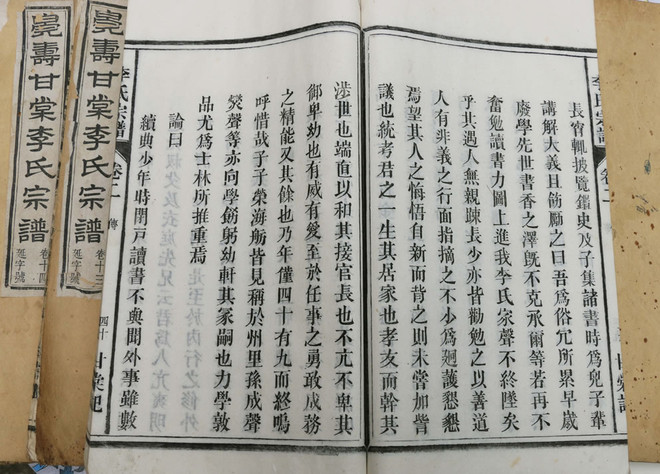 長宵輒披覽鑑史及子集諸書時爲兒子輩
講解大義且勗勵之曰吾爲俗冗所累早歲
廢學先世書香之澤旣不克承爾等若再不
奮勉讀書力圖上進我李氏家聲不終墜矣
乎其遇人無親踈長少亦皆勸勉之以善道
人有非義之行面指摘之不少爲廻護懇懇
焉望其人之悔悟自新而背之則未嘗加訾
議也統考君之一生其居家也孝友而幹其
涉世也端直以和其接官長也不亢不卑其
御卑幼也有威有愛至於任事之勇敢成務
之精能又其餘也乃年僅四十有九而終嗚
呼惜哉子子榮海舫皆見稱於州里孫成聲
爕聲等亦向學劬躬幼軒其冢嗣也力學敦
品尤爲士林所推重焉
論曰
續典少年時閉戸讀書不輿聞外事雖數
李氏宗譜 卷二 傳 四十 甘棠
李氏宗譜 卷二 甘棠
壽甘棠李氏宗譜
卷十三
延字號
壽甘棠李氏宗譜
卷十四
延字號